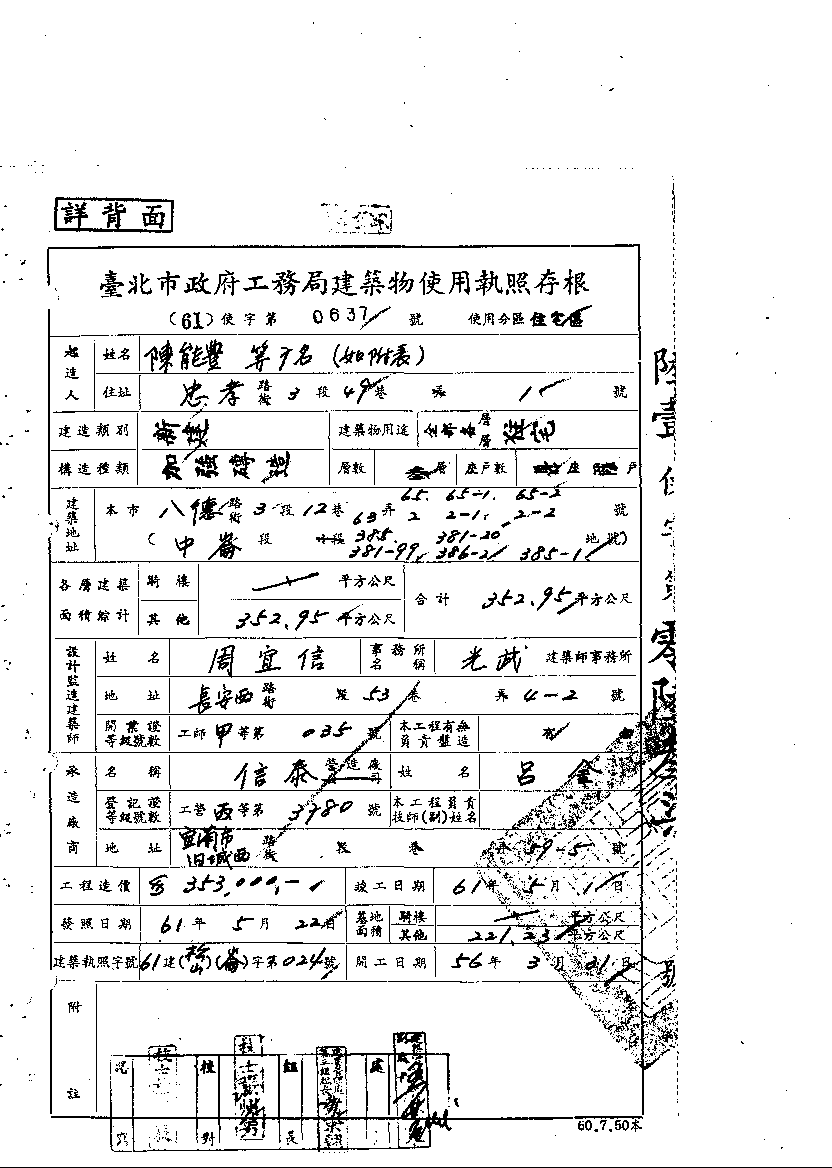 詳背面
臺北市政府工務局建築物使用執照存根
(61)使字第 0637 號 使用分區 住宅區
起造人 姓名 陳能豐 等 名(如附表)
住址 忠孝路街 3 段 49 巷 號
建造類別 新建 建築物用途 全部各層層住宅
構造種類 加強磚造 層數 層 座戶數 座 戶
建築地址 本市 八德路街 3 段 12 巷 63 弄 65. 65-1. 65-2 2 2-1. 2-2 號
(中崙 段 小段 385. 381-20 381-99, 386-2 385-1 地號)
各層建築面積綜計 騎樓 平方公尺 合計 352.95 平方公尺
其他 352.95 平方公尺
設計監造建築師 姓名 周宜信 事務所名稱 光武 建築師事務所
地址 長安西路街 段 53 巷 弄 4-2 號
開業證等級號數 工師 甲 等第 035 號 本工程有無負責監造 有
承造廠商 名稱 信泰 營造廠公司 姓名 呂金
登記證等級號數 工營 丙 等第 3780 號 本工程負責技師(副)姓名
地址 宜蘭市旧城西路街 段 巷 弄 59-5 號
工程造價 353,000,- 竣工日期 61年 5月 1日
發照日期 61年 5月 22日 基地面積 騎樓 平方公尺
其他 221.23 平方公尺
建築執照字號 61建(松山)(崙)字第024號 開工日期 56年 3月 31日
附註
組長
60.7.50本